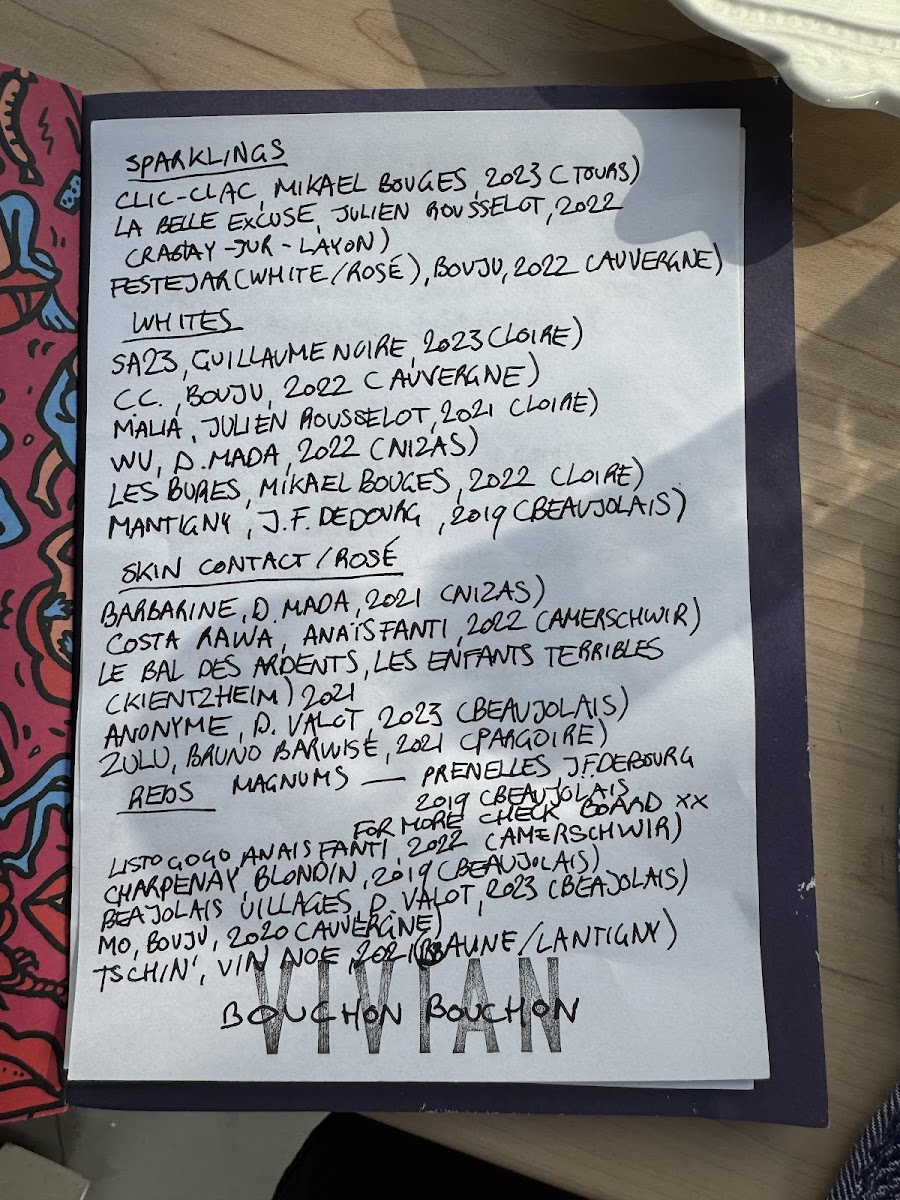 SPARKLINGS
CLIC-CLAC, MIKAEL BOUGES, 2023 (TOURS)
LA BELLE EXCUSE, JULIEN ROUSSELOT, 2022
-SUR-LAYON)
FESTEJAR (WHITE/ROSÉ), BOUJU, 2022 (AUVERGNE)
WHITES
SA23, GUILLAUME NOIRE, 2023 (LOIRE)
C.C., BOUJU, 2022 (AUVERGNE)
MALIA, JULIEN ROUSSELOT, 2021 (LOIRE)
WU, D.MADA, 2022 (NIZAS)
LES BURES, MIKAEL BOUGES, 2022 (LOIRE)
MANTIGNY, J.F. DEDOURG, 2019 (BEAUJOLAIS)
SKIN CONTACT/ROSÉ
BARBARINE, D.MADA, 2021 (NIZAS)
COSTA RAWA, ANAÏS FANTI, 2022 (AMERSCHWIR)
LE BAL DES ARDENTS, LES ENFANTS TERRIBLES
(KIENTZHEIM) 2021
ANONYME, D. VALOT, 2023 (BEAUJOLAIS)
ZULU, BRUNO BARWISE, 2021 (PARGOIRE)
REDS MAGNUMS — PRENELLES, J.F.DEBOURG
2019 (BEAUJOLAIS
FOR MORE CHECK BOARD XX
LISTO GOGO, ANAIS FANTI, 2022 (AMERSCHWIR)
CHARPENAY, BLONDIN, 2019 (BEAUJOLAIS)
BEAJOLAIS VILLAGES, D. VALOT, 2023 (BEAJOLAIS)
MO, BOUJU, 2020 (AUVERGNE)
TSCHIN', VIN NOE, 2021 (BEAUNE/LANTIGNY)
VIVIAN
BOUCHON BOUCHON